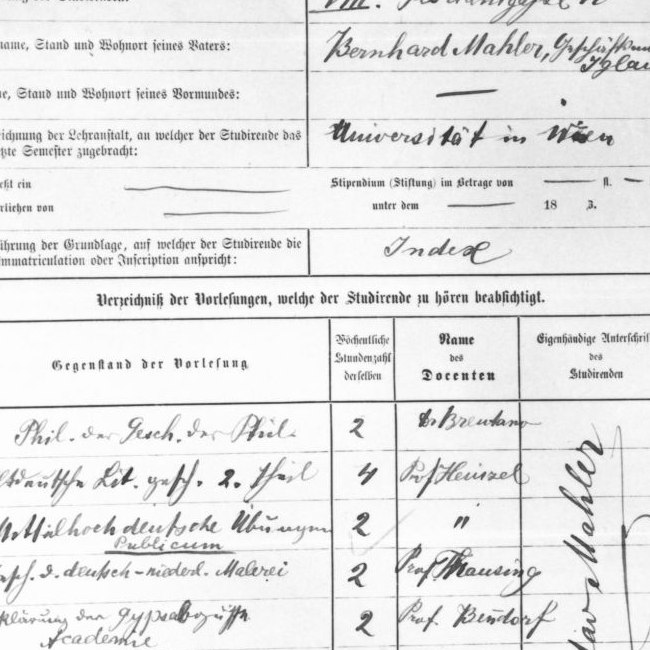 VIII.
name, Stand und Wohnort seines Vaters: Bernhard Mahler, Geschäftsm
Iglau
e, Stand und Wohnort seines Vormundes: —
eichnung der Lehranstalt, an welcher der Studirende das Universität in Wien
tzte Semester zugebracht:
eßt ein — Stipendium (Stiftung) im Betrage von — fl. —
rliehen von — unter dem — 18 Z.
ührung der Grundlage, auf welcher der Studirende die Index
mmatriculation oder Inscription anspricht:
Verzeichniß der Vorlesungen, welche der Studirende zu hören beabsichtigt.
Gegenstand der Vorlesung
Wöchentliche Stundenzahl derselben
Name des Docenten
Eigenhändige Unterschrift des Studirenden
Phil. der Gesch. der Phil. 2 Dr Brentano
ltdeutsche Lit. gesch. 2. Theil 4 Prof Heinzel
Mittelhochdeutsche Übungen 2 "
Publicum
esch. d. deutsch-niederl. Malerei 2 Prof Thausing
klärung der Gypsabgüsse 2 Prof. Bendorf
Academie
tav Mahler